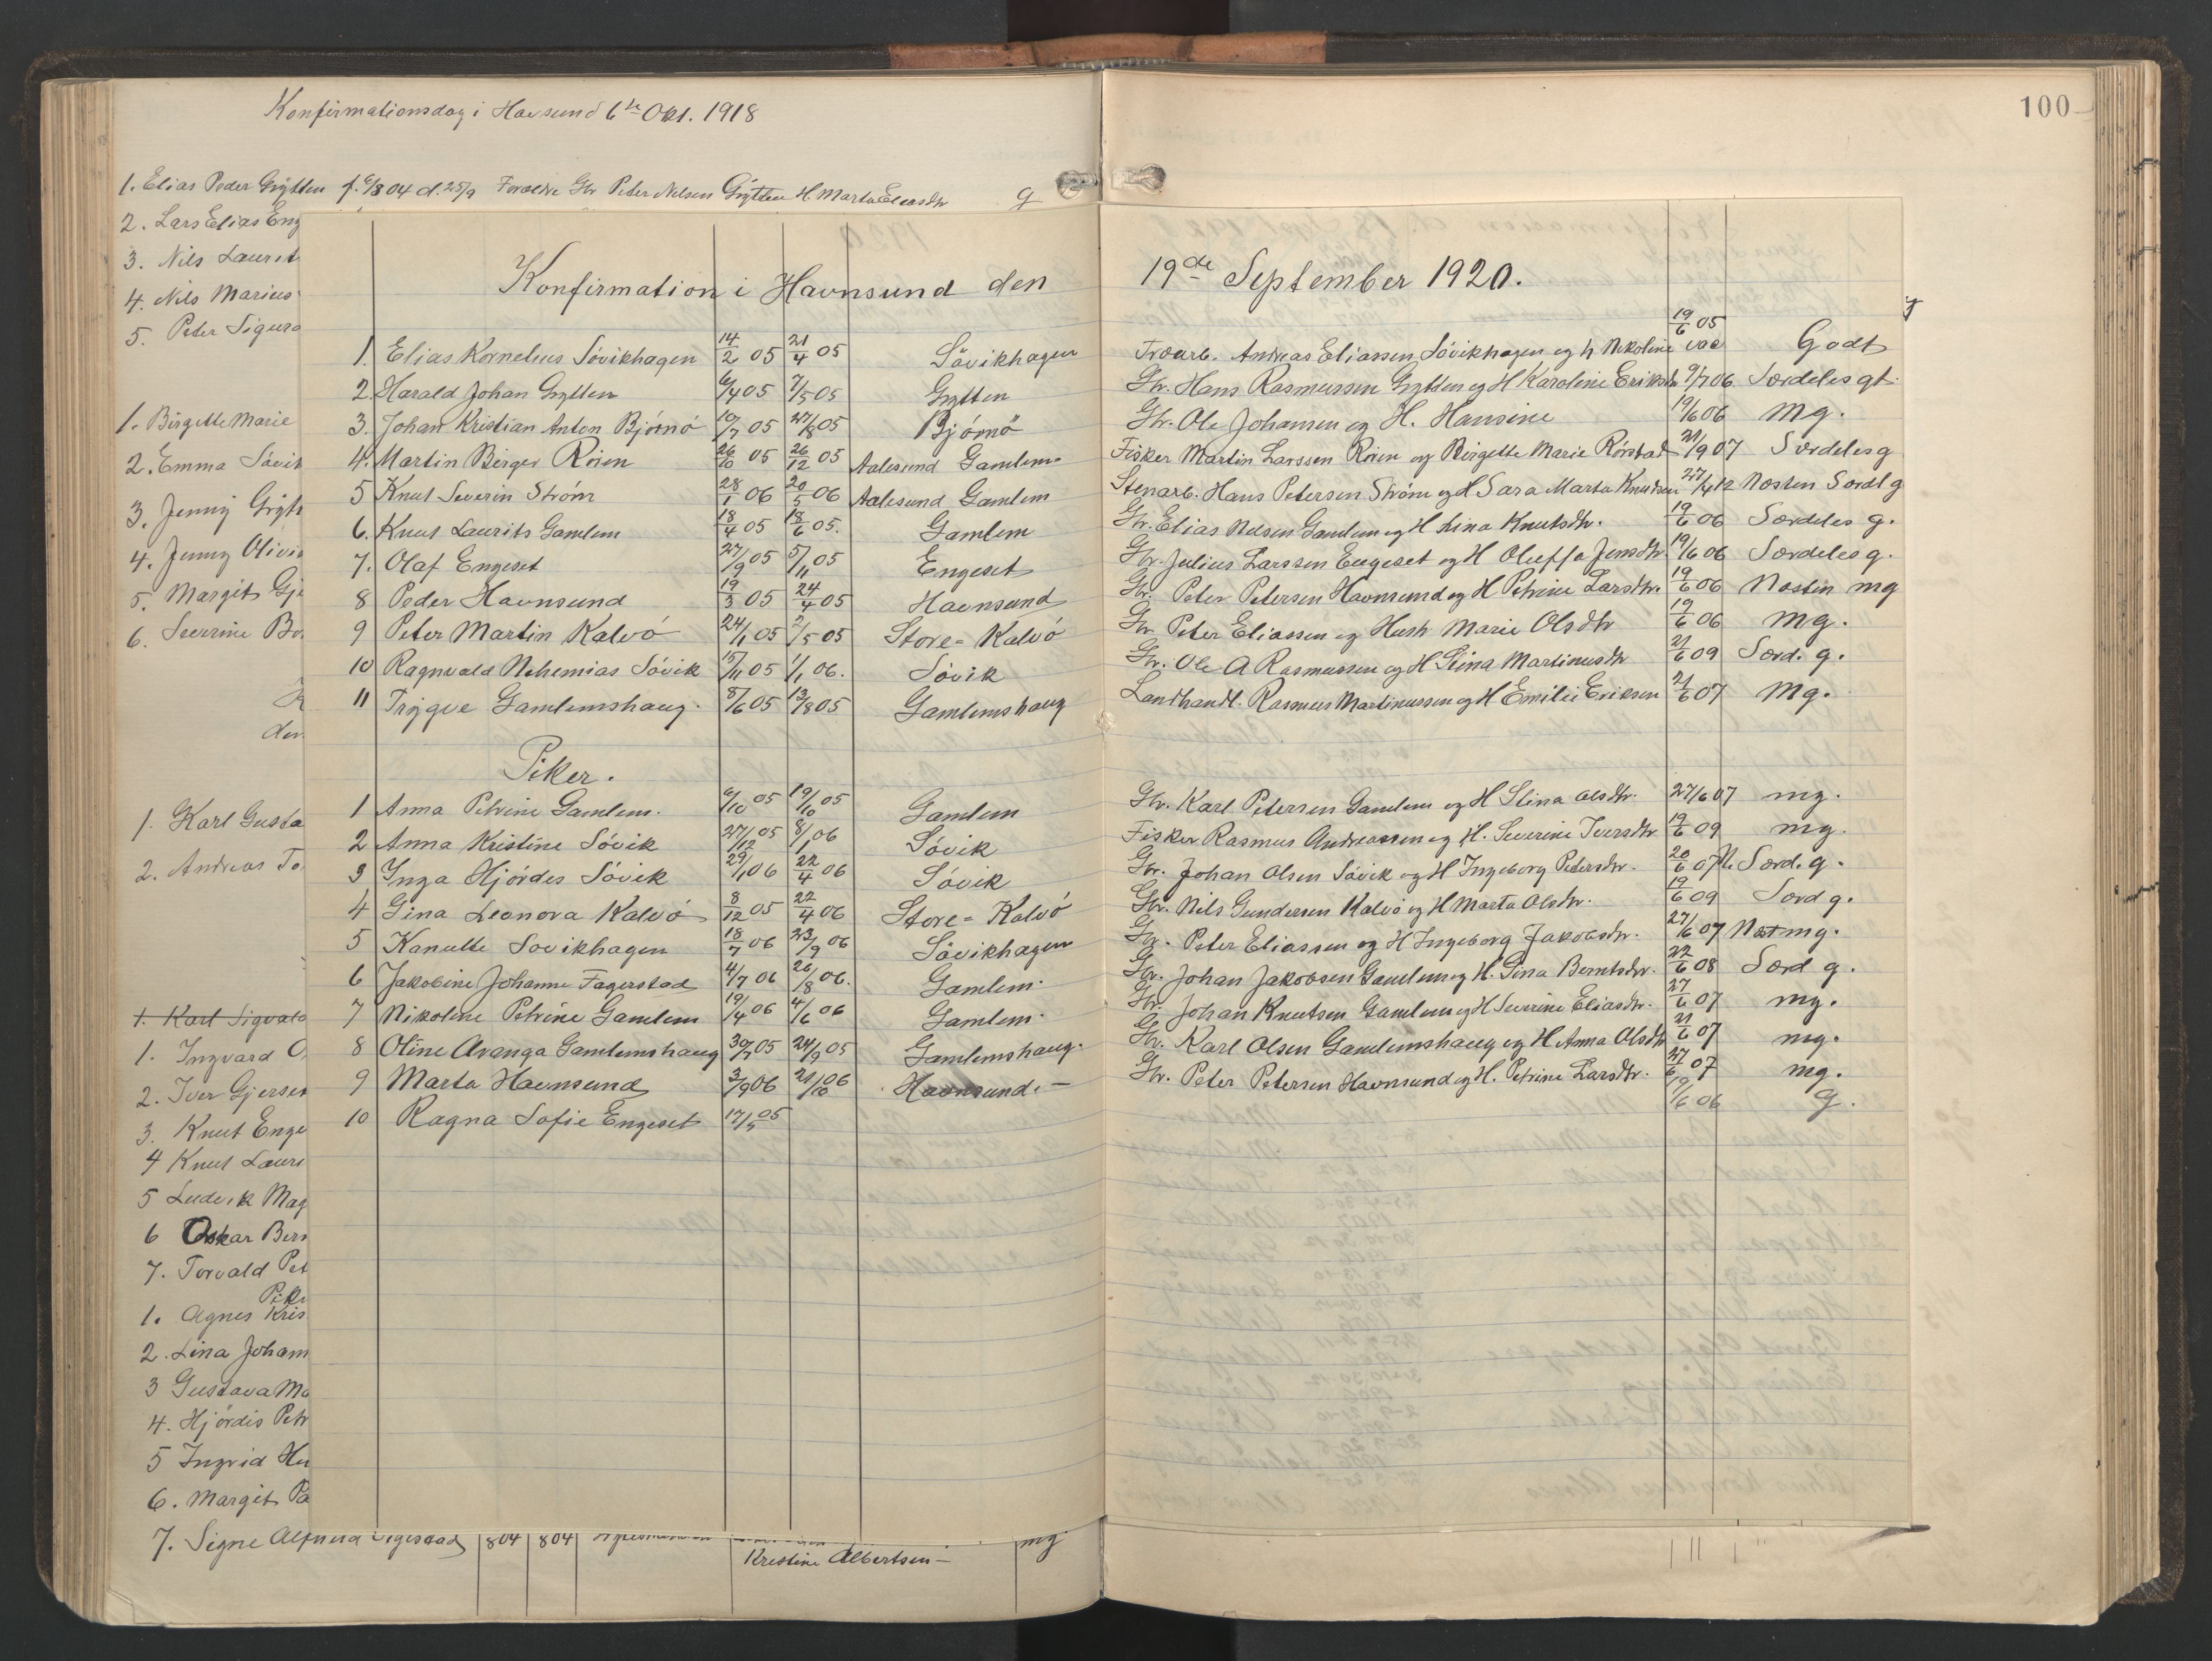 100
Konfirmationsdag i Havsund 6te Okt. 1918
1. Elias Peder Grytten f. 6/8 04 d. 25/9 Forældre Gbr Peter Nilsen Grytten H Marta Eliasdtr g
2. Lars Elias Eng
3. Nils Laurit
4. Nils Marius
5. Peter Sigurd
1. Birgitte Marie
2. Emma Søvik
3. Jenny Gryt
4. Jenny Olivia
5. Margit Gj
6. Severine Bo
den
1. Karl Gusta
2. Andreas To
1. Karl Sigvald
1. Ingvard O
2. Iver Gjersen
3. Knut Enge
4 Knut Lauri
5 Ludvik Mag
6 Oskar Bern
7. Torvald Pet
Pike
1. Agnes Kris
2. Lina Johann
3 Gustava Ma
4. Hjördis Petr
5 Ingrid He
6. Margit Pa
7. Signe 804 804 mg
Kristine Albertsen
Konfirmation i Havnsund den 19de September 1920.
1. Elias Kornelius Søvikhagen 14/2 05 21/4 05 Søvikhagen Andreas Eliassen Søvikhagen og h Nikoline 19/6 05 vac Godt
2 Harald Johan Grytten 6/4 05 7/5 05 Grytten Gbr. Hans Rasmussen Grytten og H Karoline Eriksdtr 9/7 06 Særdeles gt.
3. Johan Kristian Anton Bjørnø 10/7 05 27/8 05 Bjørnö Gbr. Ole Johansen og H. Hansine 19/6 06 Mg.
4. Martin Birger Röien 26/10 05 26/12 05 Aalesund Gamlem Fisker Martin Larssen Röien og Birgitte Marie Rörstad 21/9 07 Særdeles g
5 Knut Severin Ström 28/1 06 20/5 06 Aalesund Gamlem Stenarb. Hans Petersen Ström og H Sara Marta Knudsen 27/4 12 Næsten Særdl g
6. Knut Laurits Gamlem 18/4 05 18/6 05. Gamlem Gbr. Elias Nilsen Gamlem og H Lina Knutsdtr. 19/6 06 Særdeles g.
7. Olaf Engeset 27/9 05 5/11 05 Engeset Gbr. Julius Larssen Engeset og H Oluffa Jensdtr. 19/6 06 Særdeles g.
8 Peder Havnsund 19/3 05 24/4 05 Havnsund Gbr. Peter Petersen Havnsund og H Petrine Larsdtr. 19/6 06 Næsten mg
9 Peter Martin Kalvö 24/1 05 2/5 05 Store-Kalvö Gbr Peter Eliassen og Hustr Marie Olsdtr 19/6 06 mg.
10 Ragnvald Nehemias Søvik 15/11 05 1/1 06. Søvik Gbr. Ole A Rasmussen og H Stina Martinusdtr 21/6 09 Særd. g.
11 Trygve Gamlemshaug. 8/6 05 13/8 05 Gamlemshaug Landhandl. Rasmus Martinussen og H Emilie Eriksen 21/6 07 Mg.
Piker.
1 Anna Petrine Gamlem. 6/10 05 19/10 05 Gamlem Gbr. Karl Petersen Gamlem og H Stina Olsdtr. 27/6 07 mg.
2 Anna Kristine Søvik 27/12 05 8/1 06 Søvik Fisker Rasmus Andreassen og H. Severine Iversdtr 19/6 09 mg.
3 Inga Hjördes Søvik 29/1 06 22/4 06 Søvik Gbr. Johan Olsen Søvik og H Ingeborg Petersdtr. 20/6 07 N. Særd. g.
4 Gina Leonora Kalvö 8/12 05 22/4 06 Store-Kalvö Gbr. Nils Gundersen Kalvö og H Marta Olsdtr. 19/6 09 Særd g.
5 Kanutte Søvikhagen 18/7 06 23/9 06 Søvikhagen Gbr. Peter Eliassen og H Ingeborg Jakobsdtr. 27/6 07 Næst mg.
6 Jakobine Johanne Fagerstad 4/7 06 26/8 06. Gamlem. Gbr. Johan Jakobsen Gamlem og H. Gina Berntsdtr. 22/6 08 Særd g.
7 Nikoline Petrine Gamlem 19/4 06 4/6 06 Gamlem. Gbr Johan Knutsen Gamlem og H Severine Eliasdtr. 27/6 07 mg.
8 Oline Avanga Gamlemshaug 30/7 05 24/9 05 Gamlemshaug. Gbr. Karl Olsen Gamlemshaug og H Anna Olsdtr 21/6 07 mg.
9 Marta Havnsund 3/9 06 21/10 06 Havnsund.- Gbr. Peter Petersen Havnsund og H. Petrine Larsdtr. 27/6 07 mg.
10 Ragna Sofie Engeset 17/5 05 19/6 06 g.